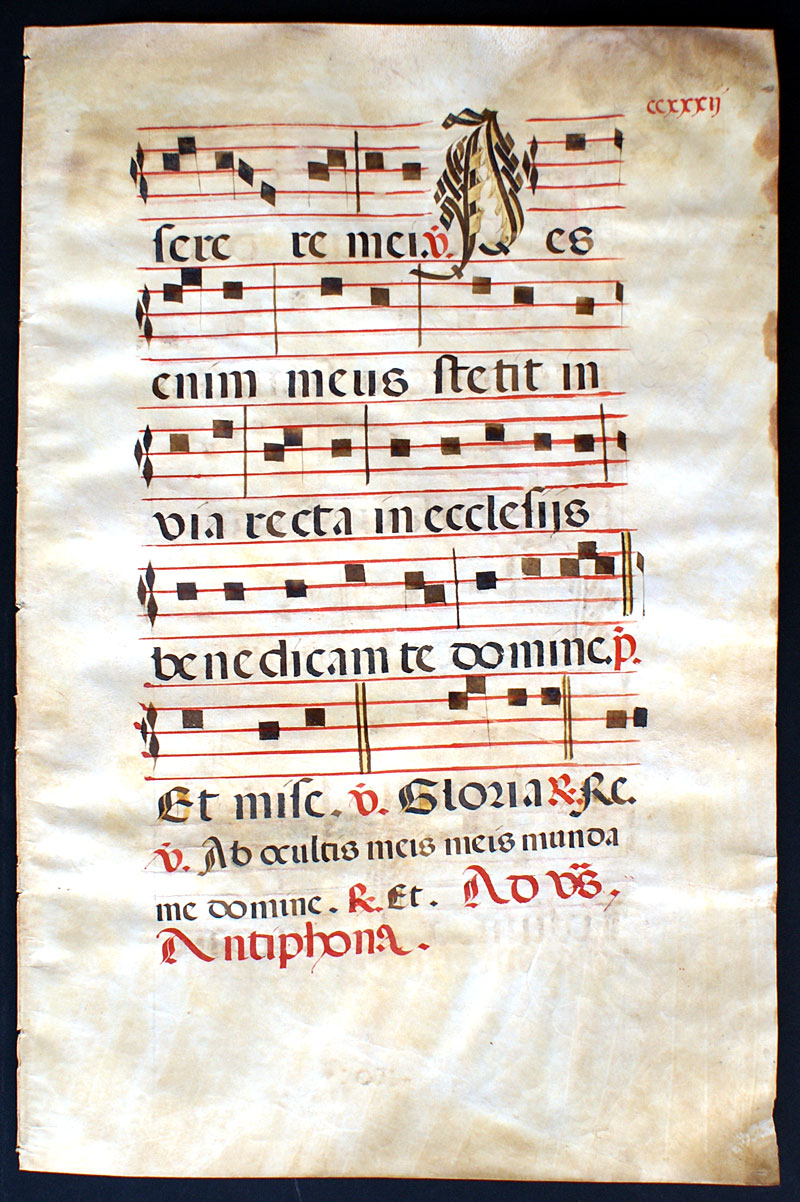 ccxxxij
sere re mei. v. Pes
enim meus stetit in
via recta in ecclesijs
benedicam te domine. p.
Et mise. v. Gloria R. Re.
v. Ab ocultis meis meis munda
me domine. R. Et. Ad vs.
Antiphona.